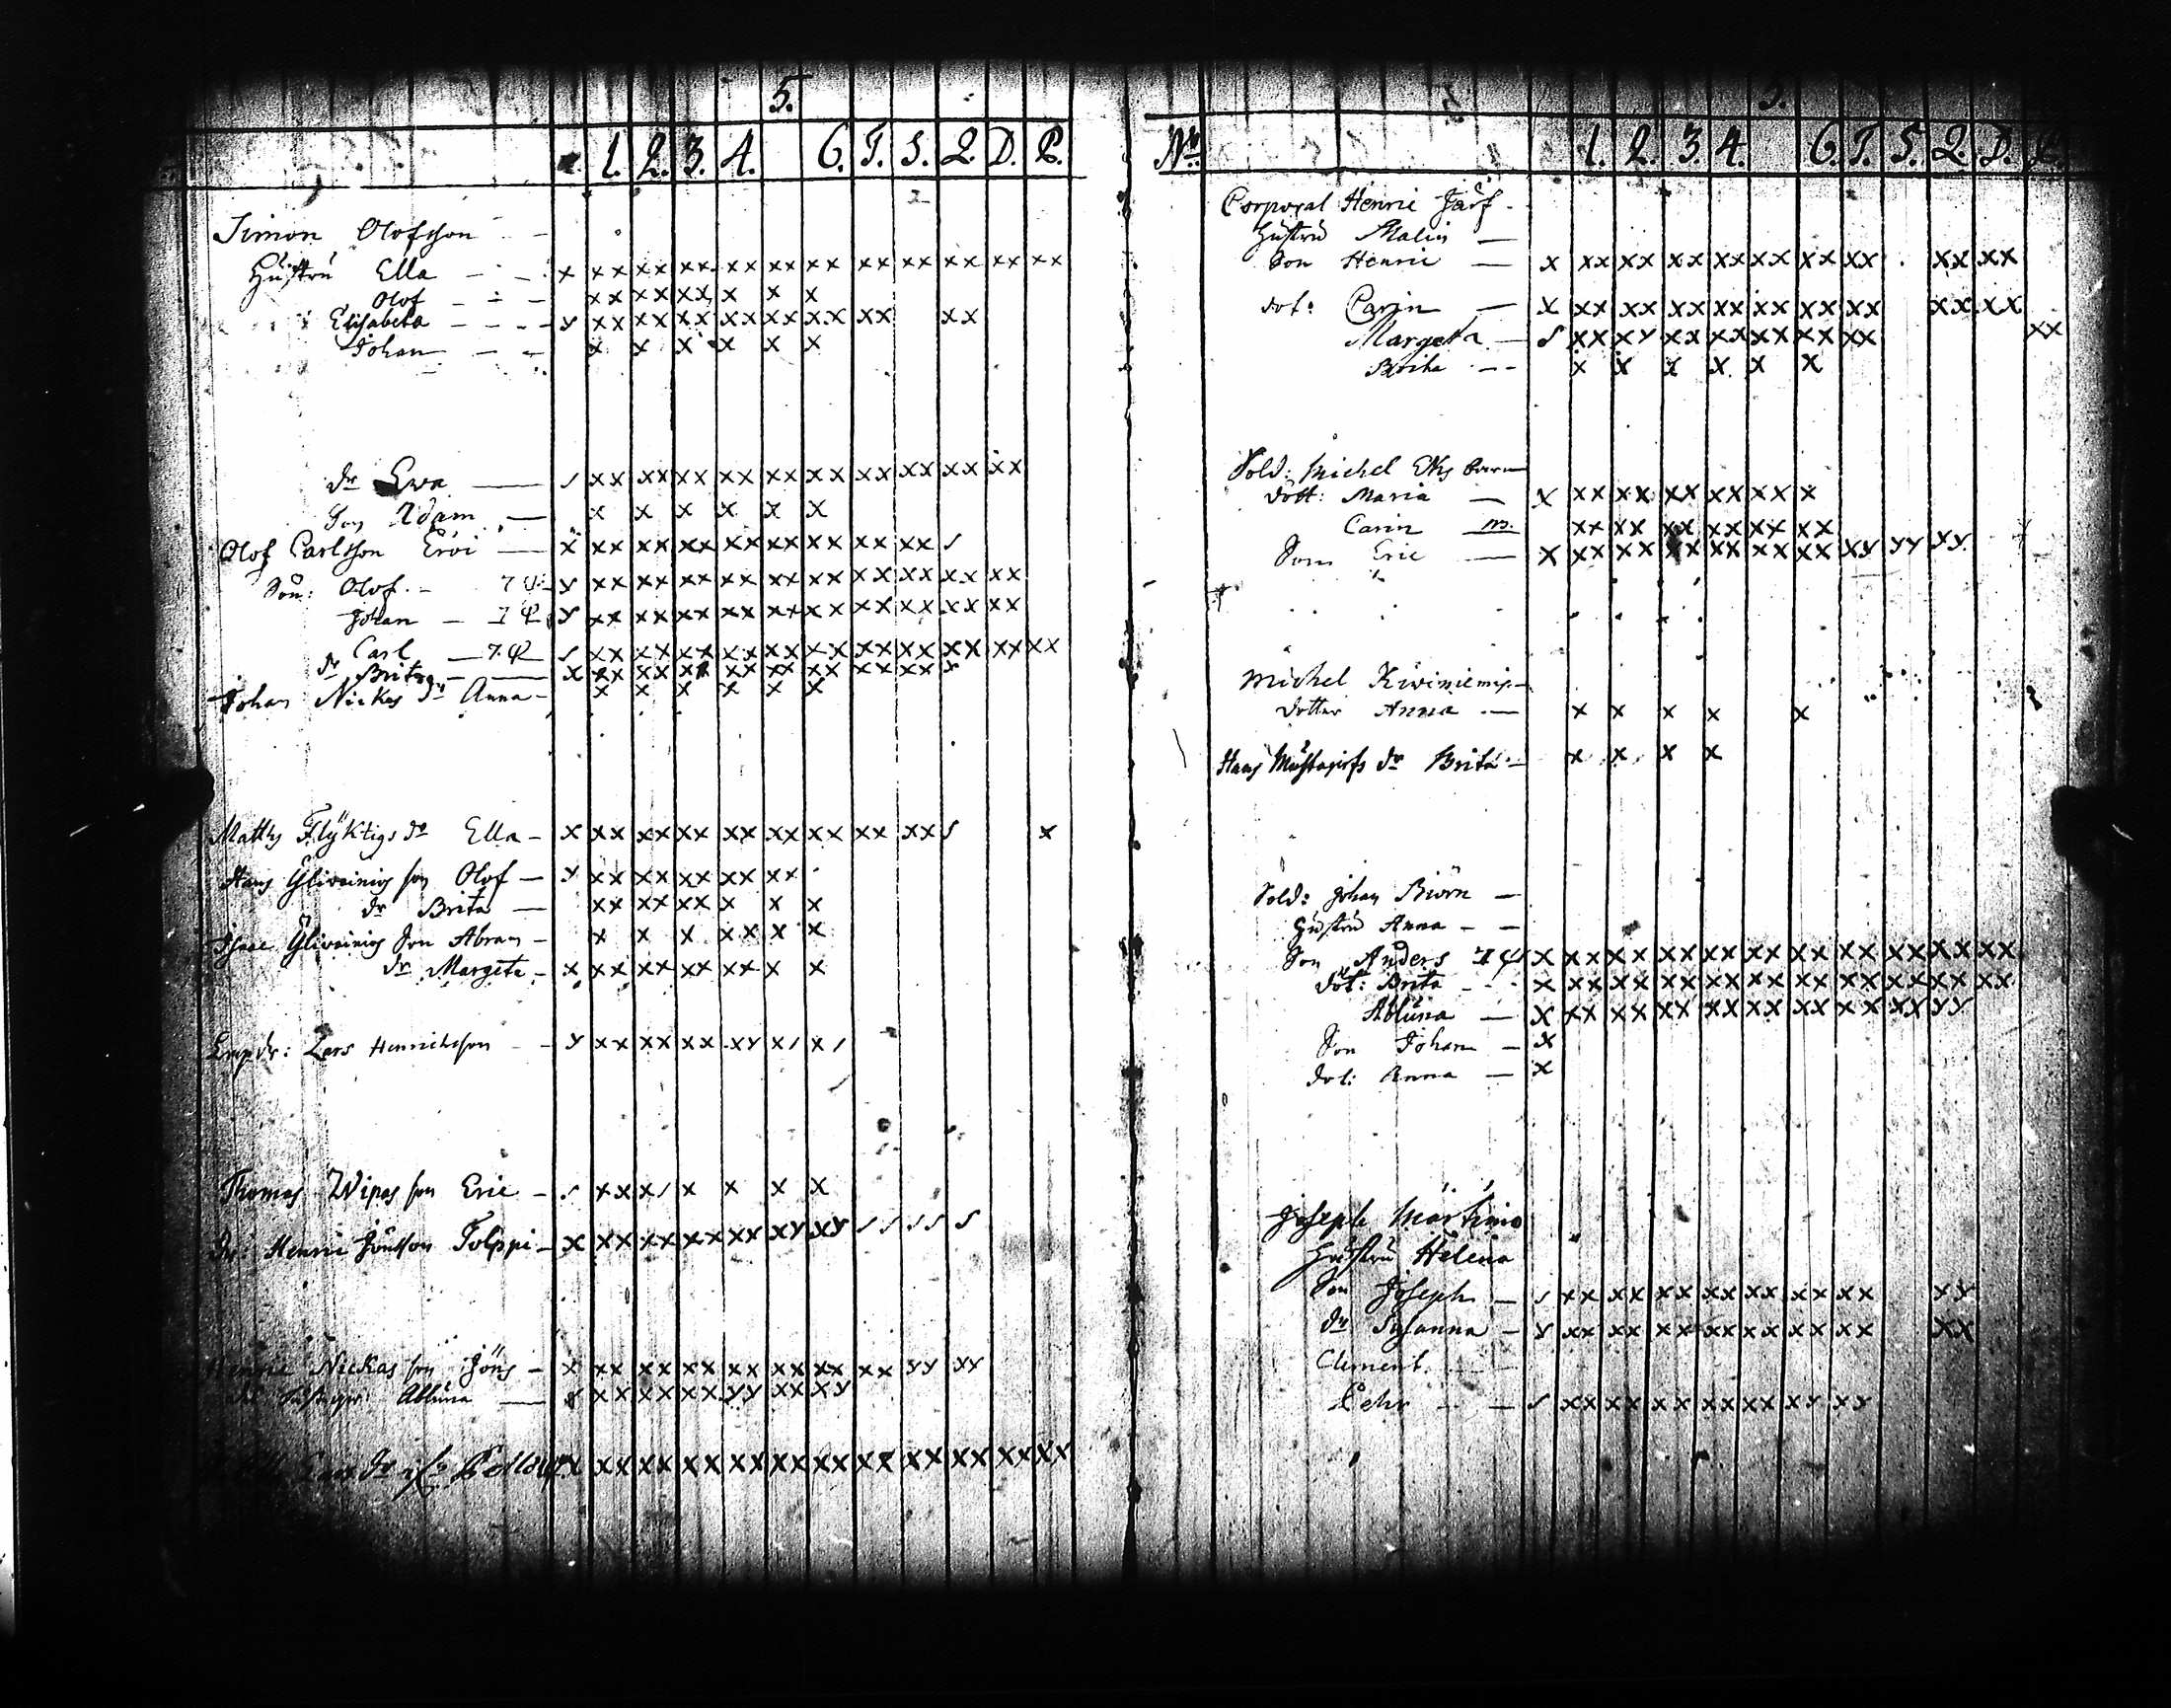 5.
1. 2. 3. 4. 6. T. S. 2. D. P.
Simon Olofsson
Hustru Ella - x xx xx xx xx xx xx xx xx xx xx xx
Olof - xx xx xx x x x
Elisabeta - y xx xx xx xx xx xx xx xx
Johan - x x x x x x
dr Ewa - / xx xx xx xx xx xx xx xx xx xx
Son Adam - x x x x x x
Olof Carlsson Eroi - x xx xx xx xx xx xx xx xx /
Son: Olof. - y xx xx xx xx xx xx xx xx xx xx
Johan - y xx xx xx xx xx xx xx xx xx xx
Carl - / xx xx xx xx xx xx xx xx xx xx xx
dr Brita - x xx xx xx xx xx xx xx xx
Johan Nickas dr Anna - x x x x x x
Matths Flÿktigs dr Ella - x xx xx xx xx xx xx xx xx / x
Hans son Olof - y xx xx xx xx xx
dr Brita - xx xx xx x x x
Isaac son Abram - x x x xx x x
dr Margeta - x xx xx xx xx x x
Lars Henrichsson - y xx xx xx xy x/ x/
Thomas Wipas son Eric - / xx x/ x x x x
Henric Jönsson Tolppi - x xx xx xx xx xy xy // // /
Henric Nickas son Jöns - x xx xx xx xx xx xx xx yy xx
Abluna - xx xx xx yy xx xy
xx xx xx xx xx xx xx xx xx xx xx
No.
5.
1. 2. 3. 4. 6. T. S. 2. D.
Corporal Henric Järf -
Hustru Malin -
Son Henric - x xx xx xx xx xx xx xx xx xx
dot: Carin - x xx xx xx xx xx xx xx xx xx
Margeta - / xx xy xx xx xx xx xx xx
Brita - x x x x x x
Sold: Michel
Dott: Maria - x xx xx xx xx xx x
Carin - m. xx xx xx xx xx xx
Son Eric - x xx xx xx xx xx xx xy yy xy
Michel Kiviniemi -
dotter Anna - x x x x x
Hans dr Brita - x x x x
Sold: Johan Biörn -
Hustru Anna - -
Son Anders x xx xx xx xx xx xx xx xx xx xx
Dot: Brita - x xx xx xx xx xx xx xx xx xx xx
Abluna - x xx xx xx xx xx xx xx xx yy
Son Johan - x
dot: Anna - x
Joseph Martinio
Hustru Helena
Son Joseph - / xx xx xx xx xx xx xx xy
dr Susanna - y xx xx xx xx xx xx xx xx
Clement
Pehr - / xx xx xx xx xx xy xy